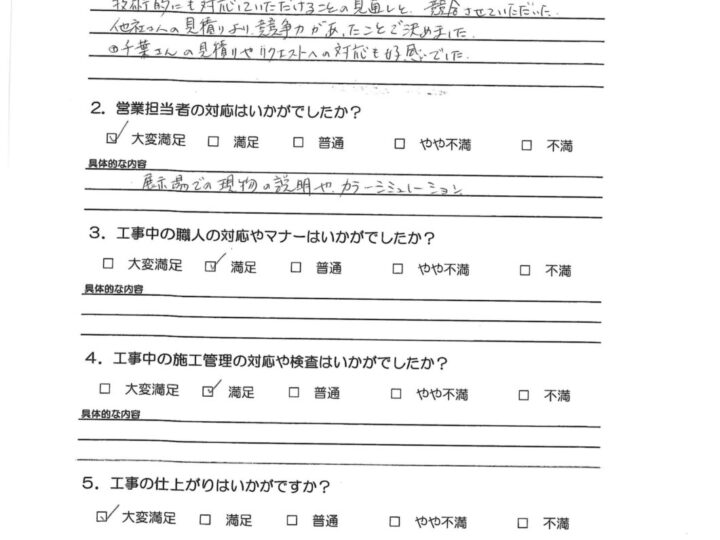 技術的にも対応していただけることの見通しと、競合させていただいた
他社さんの見積りより競争力があったことで決めました.
①千葉さんの見積りやリクエストへの対応も好感でした.
2. 営業担当者の対応はいかがでしたか？
☑ 大変満足 □ 満足 □ 普通 □ やや不満 □ 不満
具体的な内容
展示場での現物の説明や、カラーシミュレーション
3. 工事中の職人の対応やマナーはいかがでしたか？
□ 大変満足 ☑ 満足 □ 普通 □ やや不満 □ 不満
具体的な内容
4. 工事中の施工管理の対応や検査はいかがでしたか？
□ 大変満足 ☑ 満足 □ 普通 □ やや不満 □ 不満
具体的な内容
5. 工事の仕上がりはいかがですか？
☑ 大変満足 □ 満足 □ 普通 □ やや不満 □ 不満